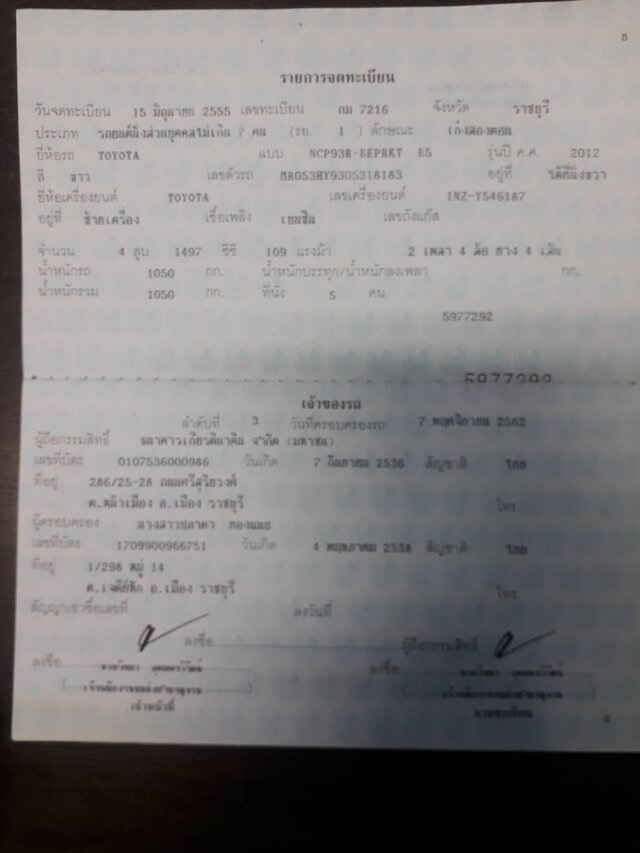 8
รายการจดทะเบียน
วันจดทะเบียน 15 มิถุนายน 2555 เลขทะเบียน กม 7216 จังหวัด ราชบุรี
ประเภท รถยนต์นั่งส่วนบุคคลไม่เกิน 7 คน (รย. 1 ) ลักษณะ เก๋งสองตอน
ยี่ห้อรถ TOYOTA แบบ NCP93R-BEPRKT B5 รุ่นปี ค.ศ. 2012
สี ขาว เลขตัวรถ MR053HY9305318183 อยู่ที่ ใต้ที่นั่งขวา
ยี่ห้อเครื่องยนต์ TOYOTA เลขเครื่องยนต์ 1NZ-Y546187
อยู่ที่ ซ้ายเครื่อง เชื้อเพลิง เบนซิน เลขถังแก๊ส
จำนวน 4 สูบ 1497 ซีซี 109 แรงม้า 2 เพลา 4 ล้อ ยาง 4 เส้น
น้ำหนักรถ 1050 กก. น้ำหนักบรรทุก/น้ำหนักลงเพลา กก.
น้ำหนักรวม 1050 กก. ที่นั่ง 5 คน
5977292
5977292
เจ้าของรถ
ลำดับที่ 3 วันที่ครอบครองรถ 7 พฤศจิกายน 2562
ผู้ถือกรรมสิทธิ์ ธนาคารเกียรตินาคิน จำกัด (มหาชน)
เลขที่บัตร 0107536000986 วันเกิด 7 กันยายน 2536 สัญชาติ ไทย
ที่อยู่ 286/25-28 ถนนศรีสุริยวงศ์
ต.หน้าเมือง อ.เมือง ราชบุรี โทร.
ผู้ครอบครอง นางสาวชภาดา ทองแมย
เลขที่บัตร 1709900966751 วันเกิด 4 พฤษภาคม 2538 สัญชาติ ไทย
ที่อยู่ 1/298 หมู่ 14
ต.เจดีย์หัก อ.เมือง ราชบุรี โทร.
สัญญาเช่าซื้อเลขที่ ลงวันที่
ลงชื่อ ผู้ถือกรรมสิทธิ์
ลงชื่อ ลงชื่อ
เจ้าหน้าที่ นายทะเบียน